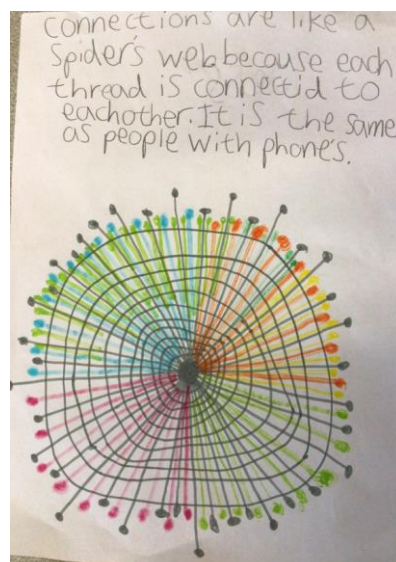 connections are like a
Spider's web because each
thread is connectid to
eachother. It is the same
as people with phone's.